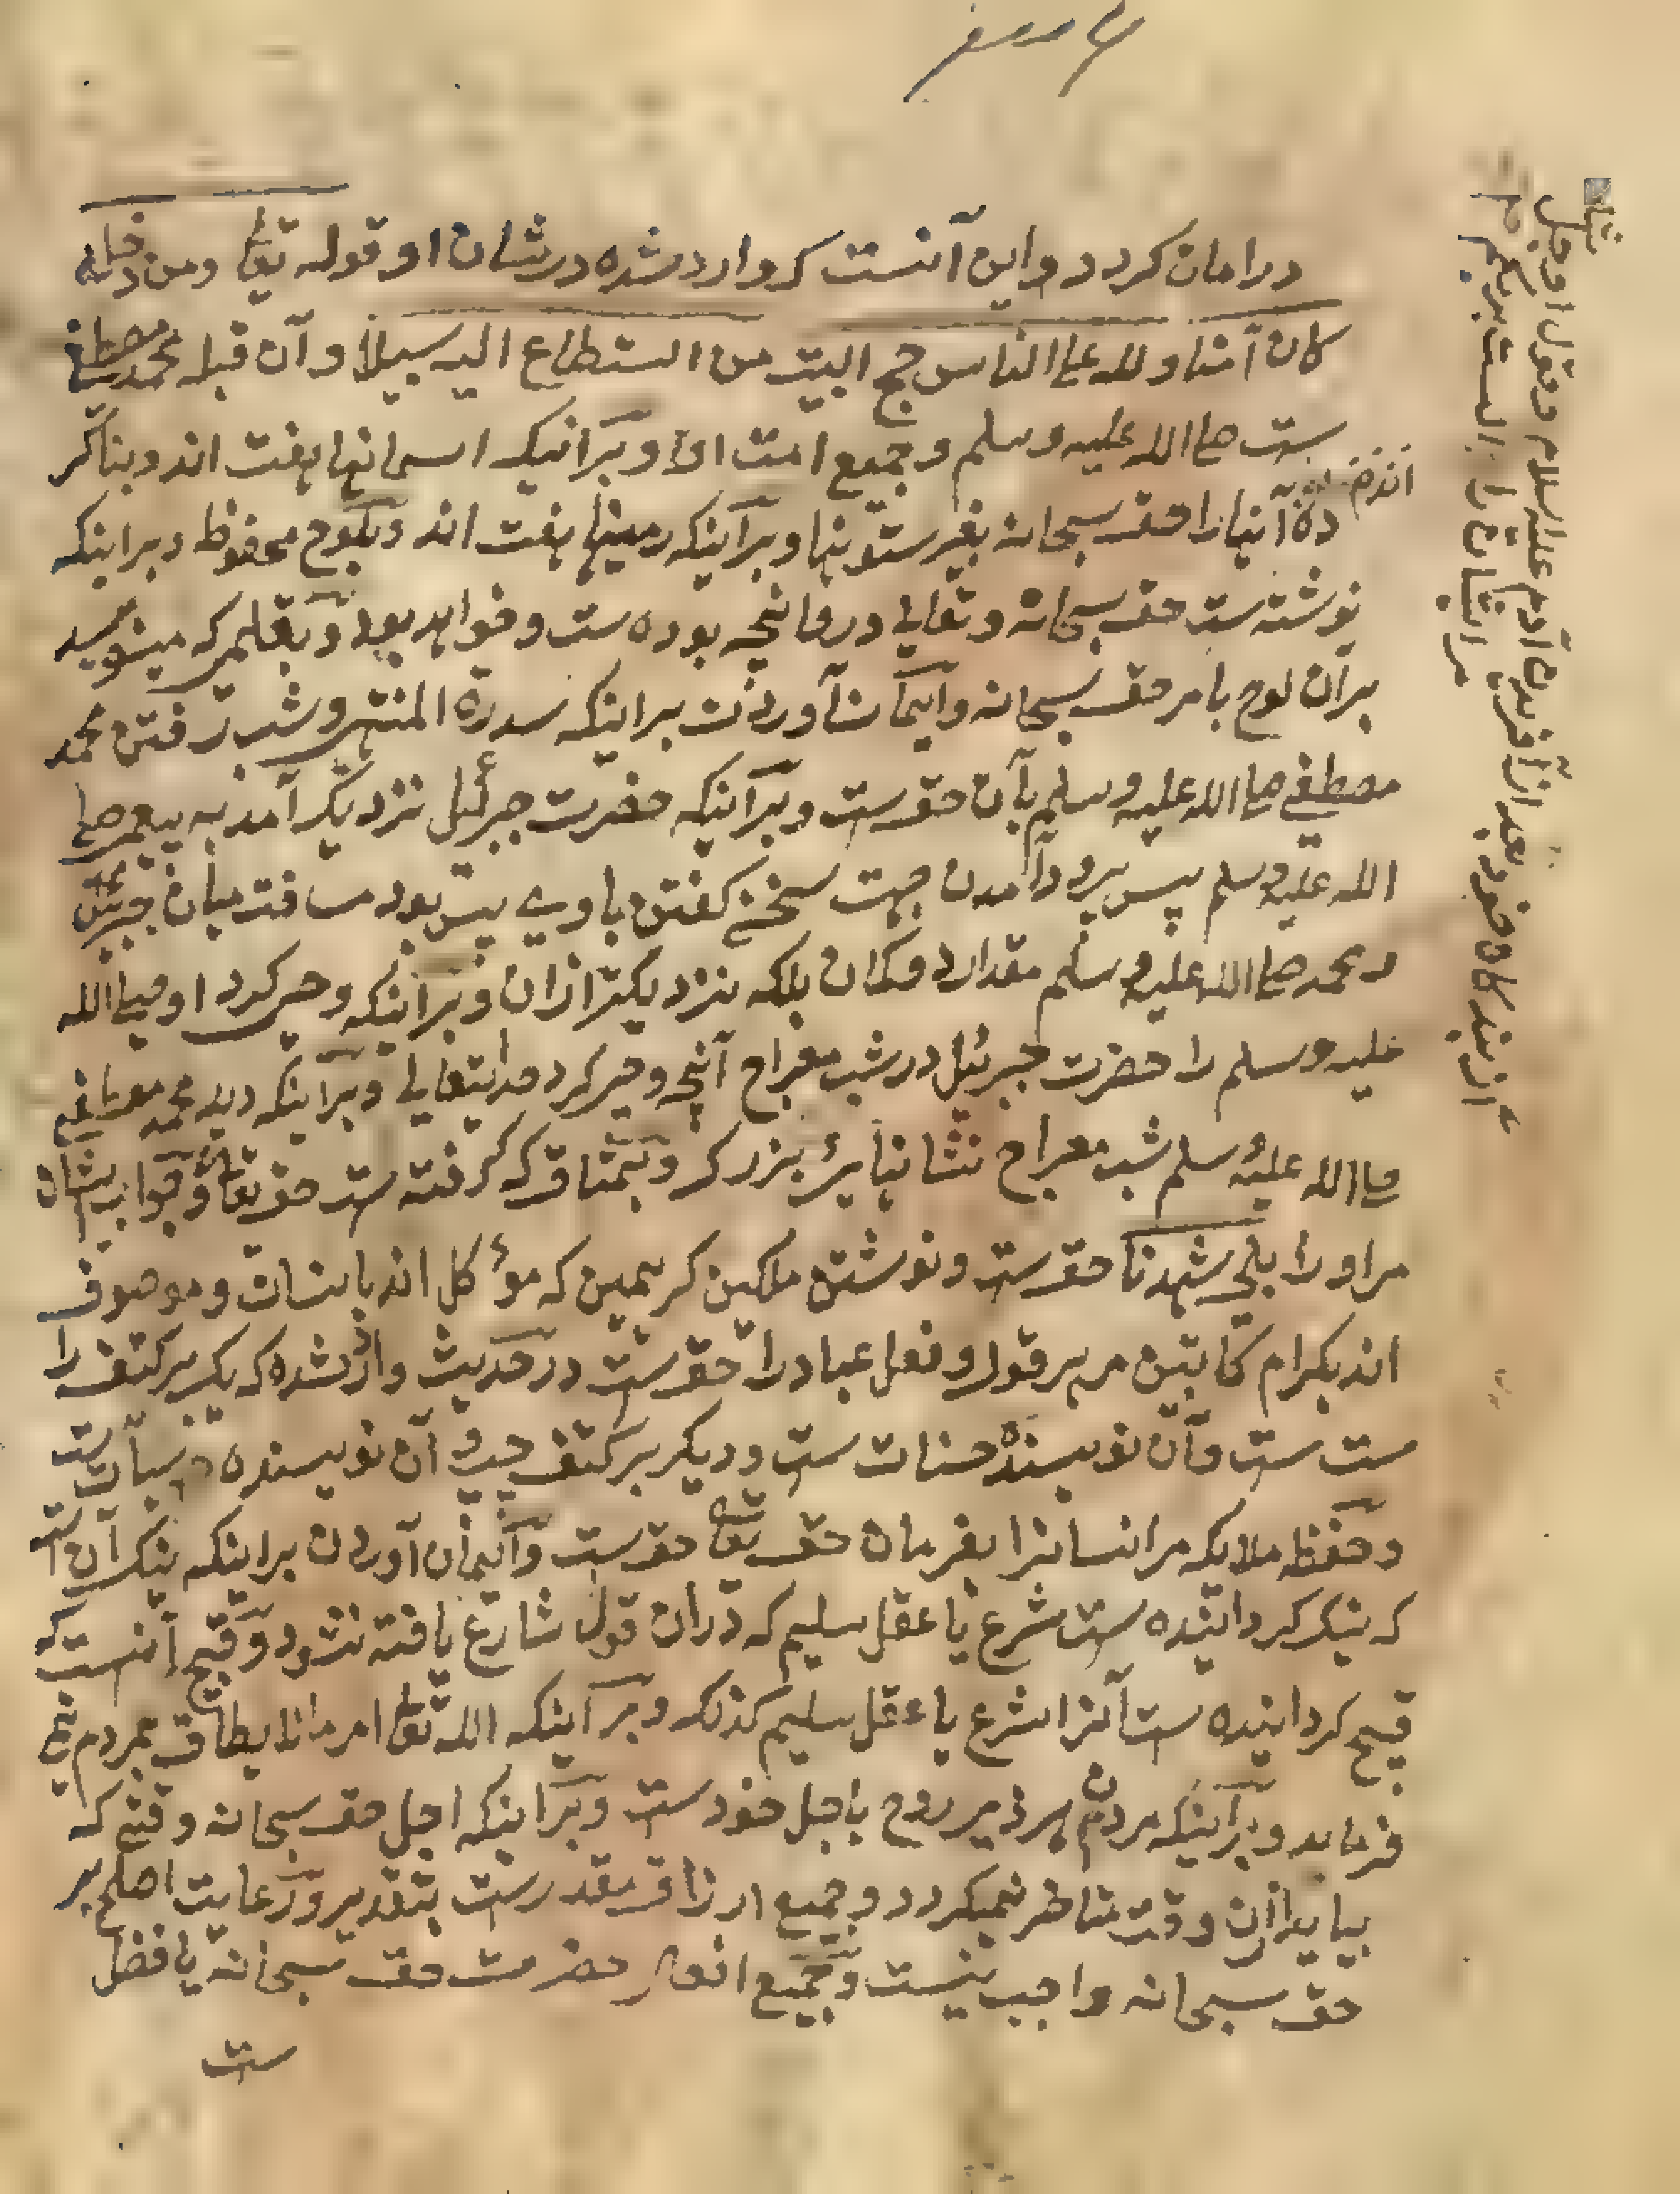 در امان کردد و این آنست که وارد شده در شان او قوله تعٰ ومن دخله
کان آمنا ولله علی الناس حج البیت من استطاع الیه سبیلا و آن قبله محمد مصطفی
ست صلی الله علیه وسلم و جمیع امت او و برانیکه اسمانها هفت اند و بنا کر
ده آنها را حق سبحانه بغیر ستونها و برآینکه زمینها هفت اند و بلوح محفوظ و براینکه
نوشته ست حق سبحانه و تعالی درو آنچه بوده ست و خواهد بود و بقلمی که مینویسد
بران لوح بامر حق سبحانه و ایمان آوردن براینکه سدرة المنتهی و شب رفتن محمد
مصطفی صلی الله علیه وسلم بآن حق ست و برآنیکه حضرت جبرئیل نزدیک آمد به پیغمبر صلی
الله علیه وسلم پس فرود آمدن جهت سخن کفتن با وی پس بود مسافت میان جبرئیل
و محمد صلی الله علیه وسلم مقدار دو کمان بلکه نزدیکتر ازان و براینکه وحی کرد او صلی الله
علیه وسلم را حضرت جبرئیل در شب معراج آنچه وحی کرد خدایتعالی و براینکه دید محمد مصطفی
صلی الله علیه وسلم شب معراج نشانیهای بزرک و بمیثاقی که کرفته ست حق تعالی و جواب ایشان
مر او را بلی شهدنا حق ست و نوشتن ملکین کریمین که مؤکل اند بانسان و موصوف
اند بکرام کاتبین مر هر قول و فعل عباد را حق ست در حدیث وارد شده که یکی بر کتف را
ست ست و آن نویسنده حسنات ست و دیکر بر کتف چپ و آن نویسنده سیأت ست
و حفظ ملایکه مر انسانرا بفرمان حق تعٰ حق ست و ایمان آوردن براینکه نیک آن ست
که نیک کردانیده ست شرع یا عقل سلیم که دران قول شارع یافته نشود و قبیح آنست که
قبیح کردانیده ست آنرا شرع یا عقل سلیم کذلک و برآینکه الله تعٰ امر مالا یطاق بمردم نمی
فرماید و برآینکه مردن هر ذی روح باجل خود ست و براینکه اجل حق سبحانه وقتی که
بیاید ازان وقت متاخر نمیکردد و جمیع ارزاق مقدر ست بتقدیر و رعایت اصلح بر
حق سبحانه واجب نیست و جمیع افعال حضرت حق سبحانه یا فضل
ست